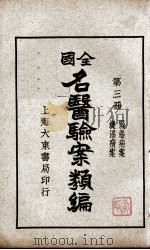 全國
名醫驗案類編
第三册
上海大東書局印行